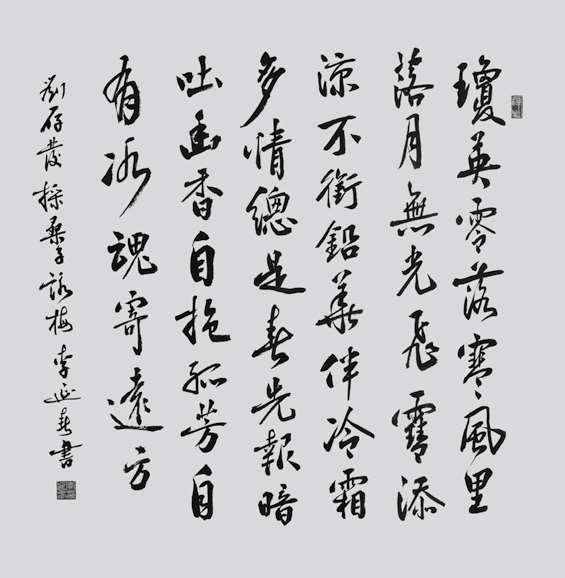 瓊英零落寒風里
落月無光飛雪添
涼不銜鉛華伴冷霜
多情總是春先報暗
吐幽香自抱孤芳自
有冰魂寄遠方
劉存發採桑子詠梅李延春書